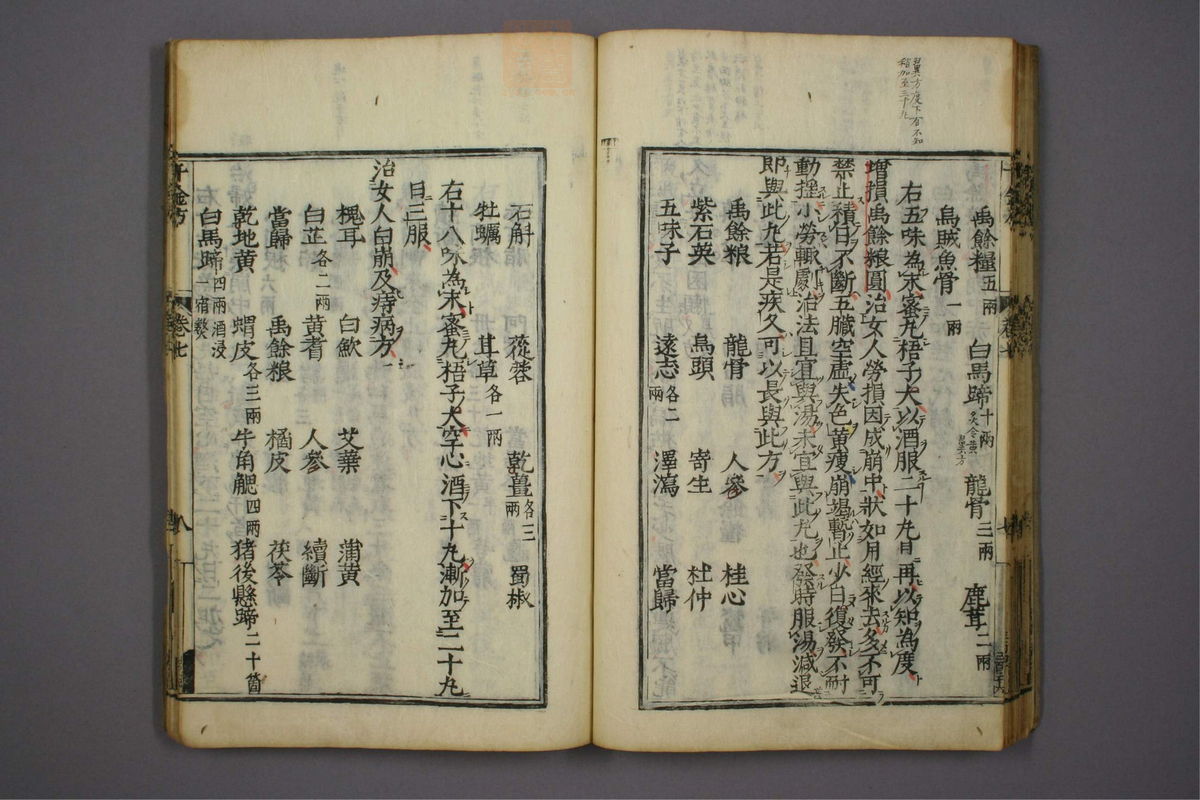 翼方度下有不知
稍加至三十丸
禹餘糧五兩 白馬蹄十兩 龍骨三兩 鹿茸二兩
烏賊魚骨一兩
右五味為末蜜丸梧子大以酒服二十丸日再以知為度
增損禹餘粮圓治女人勞損因成崩中狀如月經來去多不可
禁止積日不斷五臟空虛失色黃瘦崩竭暫止少日復發不耐
動搖小勞輒劇治法且宜與湯未宜與此丸也發時服湯減退
即與此丸若是疾久可以長與此方
禹餘粮 龍骨 人參 桂心
紫石英 烏頭 寄生 杜仲
五味子 遠志各二兩 澤瀉 當歸
石斛 蓯蓉 乾薑各三兩 蜀椒
牡蠣 甘草各一兩
右十八味為末蜜丸梧子大空心酒下十丸漸加至二十丸
日三服
治女人白崩及痔病方
槐耳 白歛 艾葉 蒲黃
白芷各二兩 黃耆 人參 續斷
當歸 禹餘粮 橘皮 茯苓
乾地黃 蝟皮各三兩 牛角䚡四兩 猪後懸蹄二十箇
白馬蹄四兩酒浸一宿熬
千金方 卷七 八